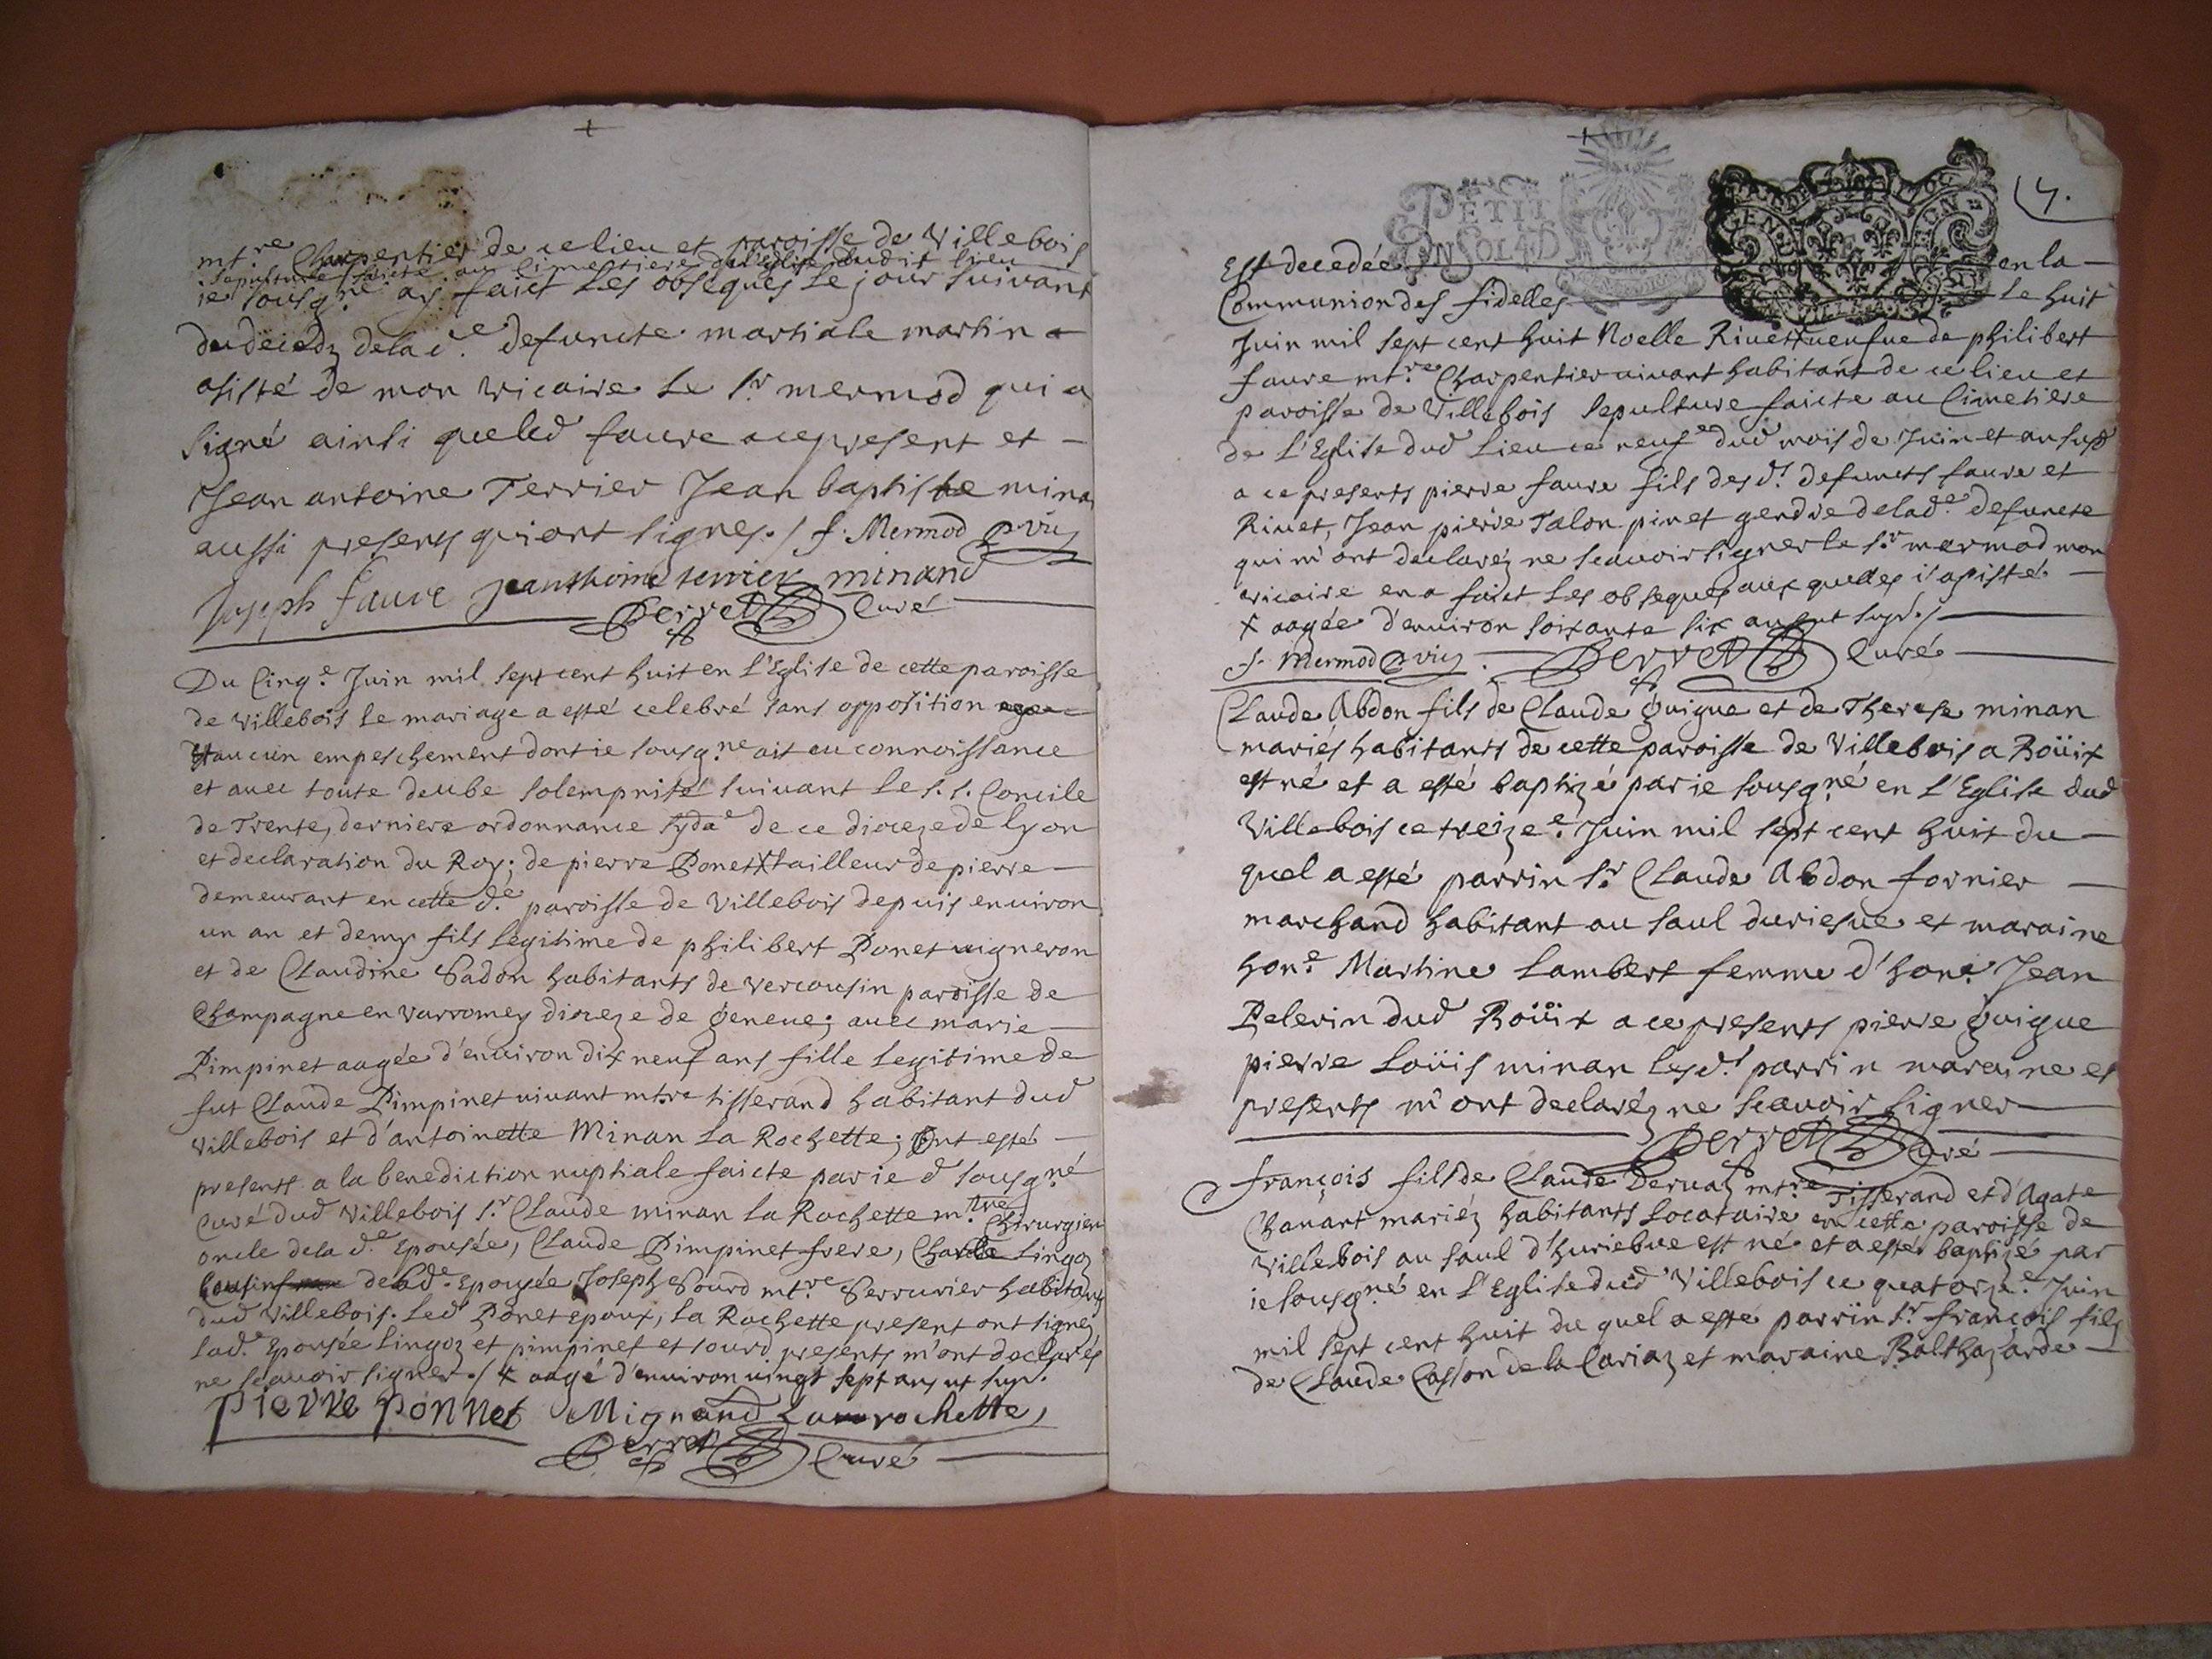 mt.re Charpentier de ce lieu et paroisse de Villebois
sepulture faicte au Cimetiere de l'Eglise dudit lieu
ie sousg.né ay faict les obseques le jour suivant
du decedz de la d.e defuncte martiale martin
asisté de mon vicaire le s.r mermod qui a
signé ainsi que led faure a ce present et
Jean antoine Terrier Jean baptiste minan
aussi presents qui ont signes./ f. Mermod vic
Joseph faure Jeanthoine terrier minand
Perret Curé
Du Cinq.e Juin mil sept cent huit en l'Eglise de cette paroisse
de Villebois le mariage a esté celebré sans opposition
aucun empeschement dont ie sousg.né ait eu connoissance
et avec toute deube solempnité suivant le s. s. Concile
de Trente, derniere ordonnance syda.e de ce dioceze de lyon
et declaration du Roy; de pierre Ponet X tailleur de pierre
demeurant en cette d.e paroisse de Villebois depuis environ
un an et demy fils legitime de philibert Ponet vigneron
et de Claudine Badon habitants de vercousin paroisse de
Champagne en varromey dioceze de geneve; avec marie
Pimpinet aagée d'environ dix neuf ans fille legitime de
fut Claude Pimpinet vivant mtre tisserand habitant dud
Villebois et d'antoinette Minan la Rochette; Ont esté
presents a la benediction nuptiale faicte par ie d sousg.né
Curé dud Villebois s.r Claude minan la Rochette m.tre Chirurgien
oncle de la d.e Epousée, Claude Pimpinet frere, Charle Lingoz
Cousin de lad.e Epousée Joseph Sourd mt.re Serrurier habitans
dud Villebois. Led Ponet epoux, la Rochette present ont signez
lad.e Epousée Lingoz et pimpinet et sourd presents m'ont declarés
ne scavoir signer./ X aagé d'environ vingt sept ans ut sup.
Pierre ponnet Mignand Larochette
Perret Curé
4.
PETIT
EN SOL 4 D
GEN
Est decedée en la
Communion des fidelles le huit
Juin mil sept cent huit Noelle Rivet X veufue de philibert
faure mt.re Charpentier vivant habitant de ce lieu et
paroisse de Villebois sepulture faicte au Cimetiere
de l'Eglise dud lieu ce neuf.e dud mois de Juin et an susd
a ce presents pierre faure fils des d.s defuncts faure et
Rivet, Jean pierre Talon pinet gendre de lad.e defuncte
qui m'ont declaréz ne scavoir signer le s.r mermod mon
vicaire en a faict les obseques aux quelles i'ay asisté
X aagée d'environ soixante six ans ut sup./
f. Mermod vic. Perret Curé
Claude Abdon fils de Claude guigue et de Therese minan
mariés habitants de cette paroisse de Villebois a Boüix
est né et a esté baptizé par ie sousg.né en l'Eglise dud
Villebois ce treize.e Juin mil sept cent huit du
quel a esté parrin s.r Claude Abdon fornier
marchand habitant au saul duriesue et maraine
hon.e Martine Lambert femme d'hon.e Jean
Pelerin dud Boüix a ce presents pierre guigue
pierre Loüis minan les d.s parrin maraine et
presents m'ont declaréz ne scavoir signer
Perret Curé
françois fils de Claude Dervaz mt.re Tisserand et d'Agate
Chanart mariéz habitants locataire en cette paroisse de
Villebois au saul d'huriebue est né et a esté baptizé par
ie sousg.né en l'Eglise dud Villebois ce quatorze.e Juin
mil sept cent huit du quel a esté parrin s.r françois fils
de Claude Casson de la Cariaz et maraine Balthazarde